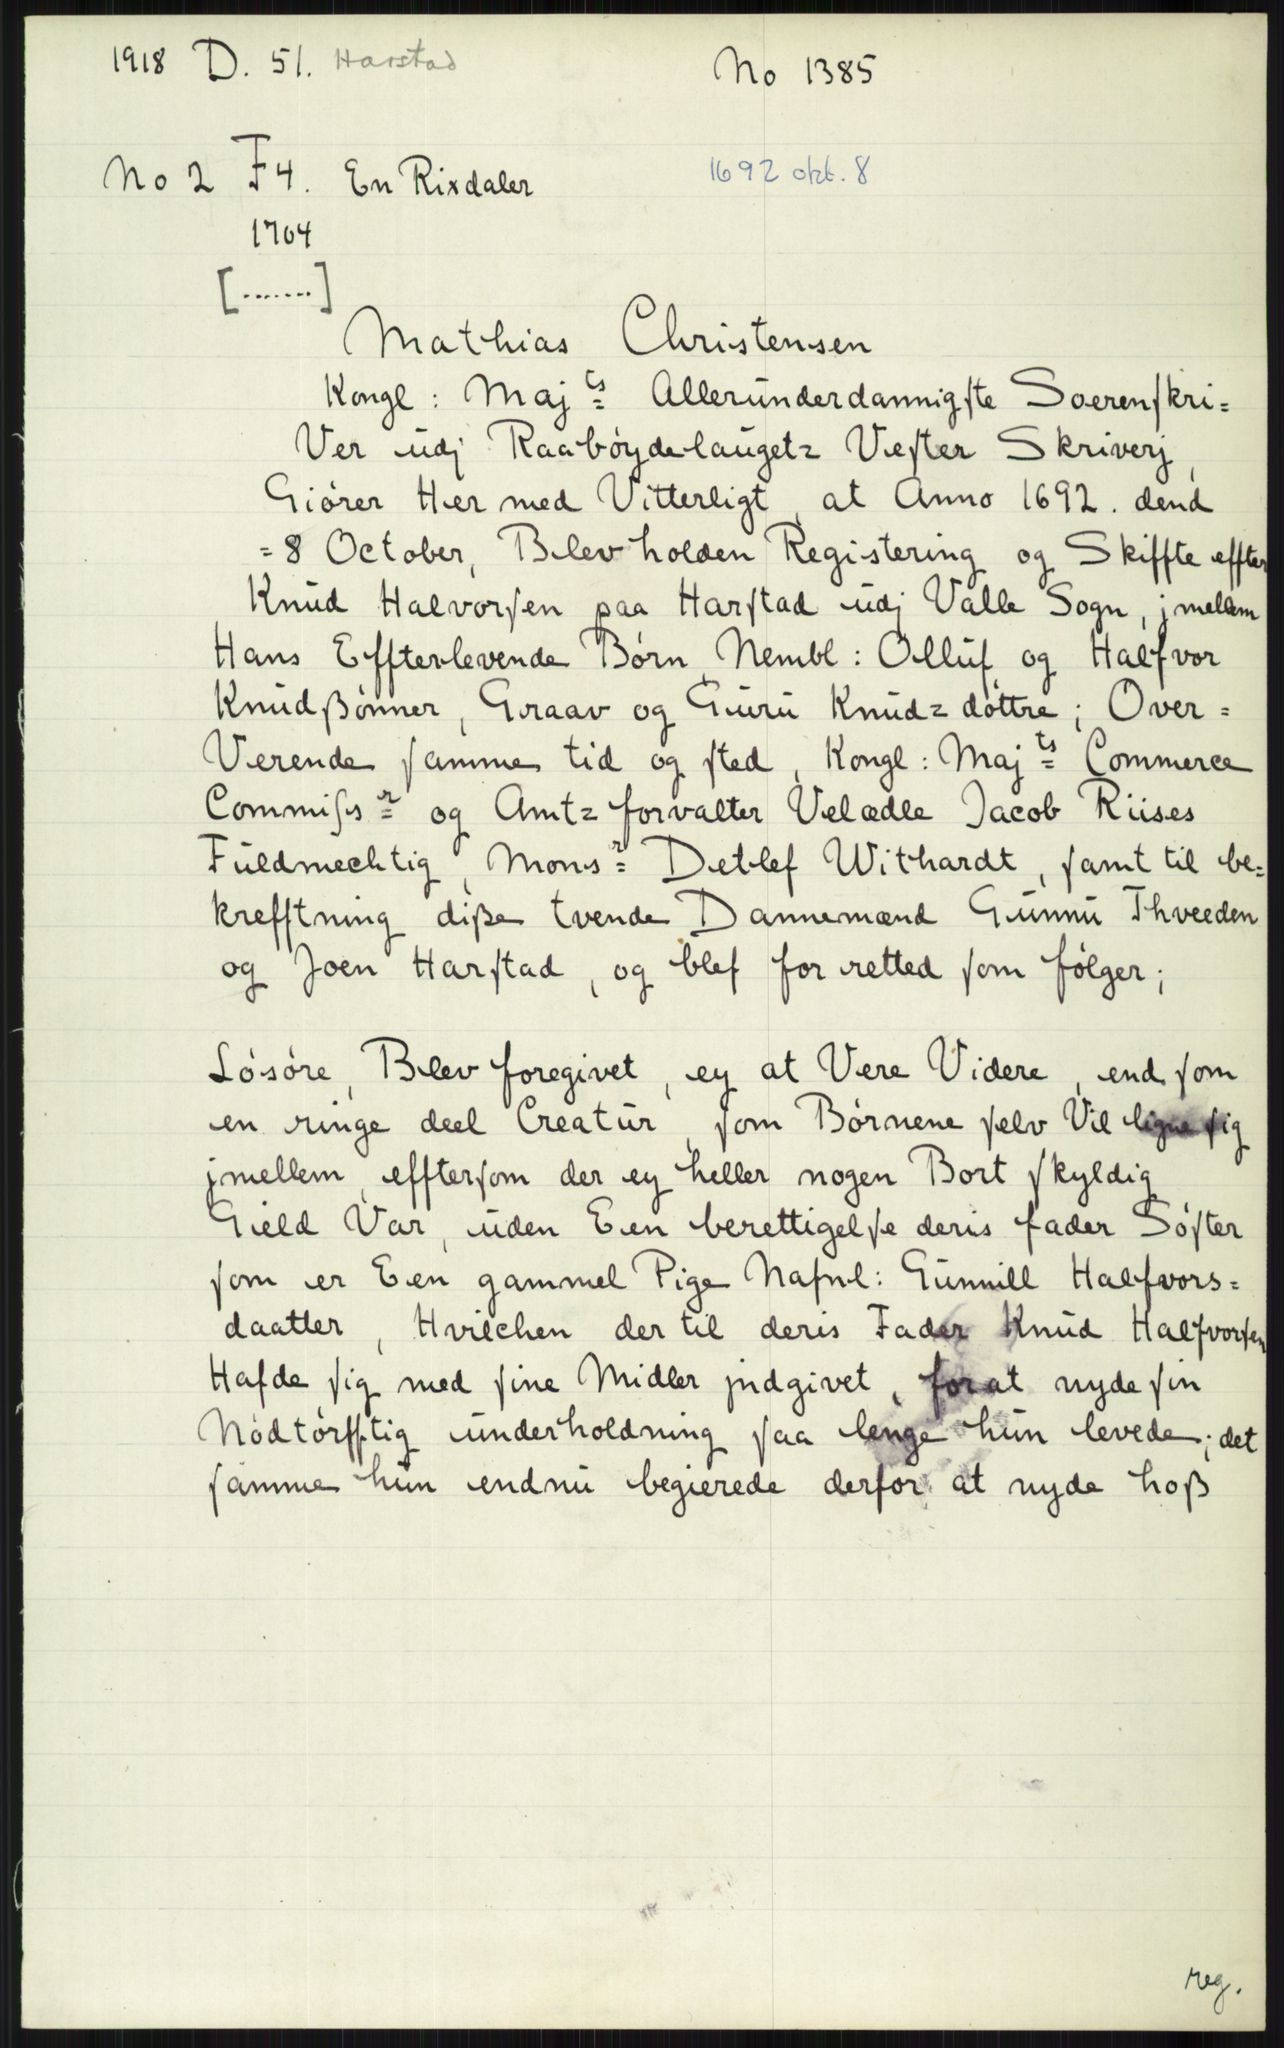 1918 D. 51. Harstad No 1385
No 2 F4. En Rixdaler 1692 okt. 8
1704
[.......]
Mathias Christensen
Kongl: Maj ts= Alleründerdannigſte Soerenſkri=
Ver üdj Raabóÿdelaügetz Veſter Skriverj,
Giórer Her med Vitterligt, at Anno 1692. dend
=8 October, Blev holden Registering og Skiffte effter
Knüd Halvorſen paa Harſtad üdj Valle Sogn, jmellem
Hans Effterlevende Bórn Nembl: Ollüf og Halfvor
Knüdßónner, Graav og Gürü Knüdz dóttre; Over=
Verende ſamme tid og ſted, Kongl: Maj ts= Commerce
Commiſsr= og Amtz forvalter Velædle Jacob Riises
Füldmechtig, Monsr= Detlef Withardt, ſamt til be=
krefftning diße tvende Dannemænd Günnü Thveeden
og Joen Harſtad, og blef for retted ſom fólger;
Lósóre, Blev foregivet, ey at Vere Videre, end ſom
en ringe deel Creatür, ſom Bórnene ſelv Vil ligne ſig
jmellem, effterſom der ey heller nogen Bort ſkyldig
Gield Var, üden Een berettigelſe deris fader Sóſter
ſom er Een gammel Pige Nafnl: Günnill Halfvors=
daatter, Hvilchen der til deris Fader Knüd Halfvorſen
Hafde ſig med ſine Midler jndgivet, for at nyde ſin
Nódtórfftig ünderholdning ſaa lenge hün levede; det
ſamme hün endnü begierede derfor at nyde hoß
reg.